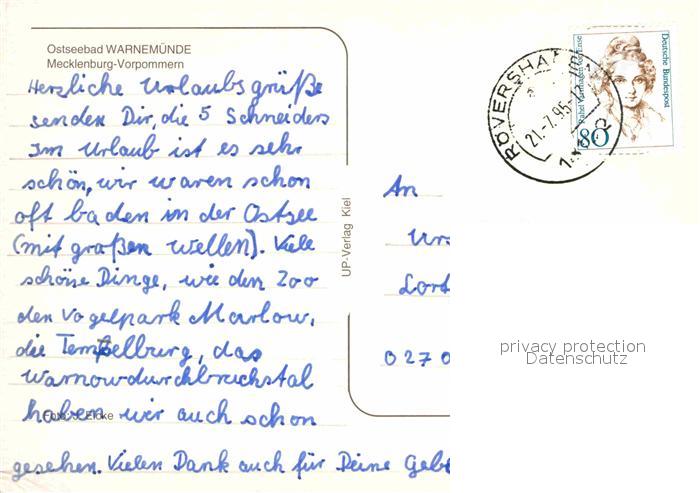 Ostseebad WARNEMÜNDE
Mecklenburg-Vorpommern
Herzliche Urlaubsgrüße
senden Dir, die 5 Schneiders
Im Urlaub ist es sehr
schön, wir waren schon
oft baden in der Ostsee
(mit großen Wellen). Viele
schöne Dinge, wie den Zoo
den Vogelpark Marlow,
die Tempelburg, das
Warnowdurchbruchstal
haben wir auch schon
gesehen. Vielen Dank auch für Deine Geb
Foto: J. Eicke
UP-Verlag Kiel
An
Urs
Lort
0270
ROVERSHA
21.-7.95
Deutsche Bundespost
Rahel Varnhagen von Ense
80
privacy protection
Datenschutz